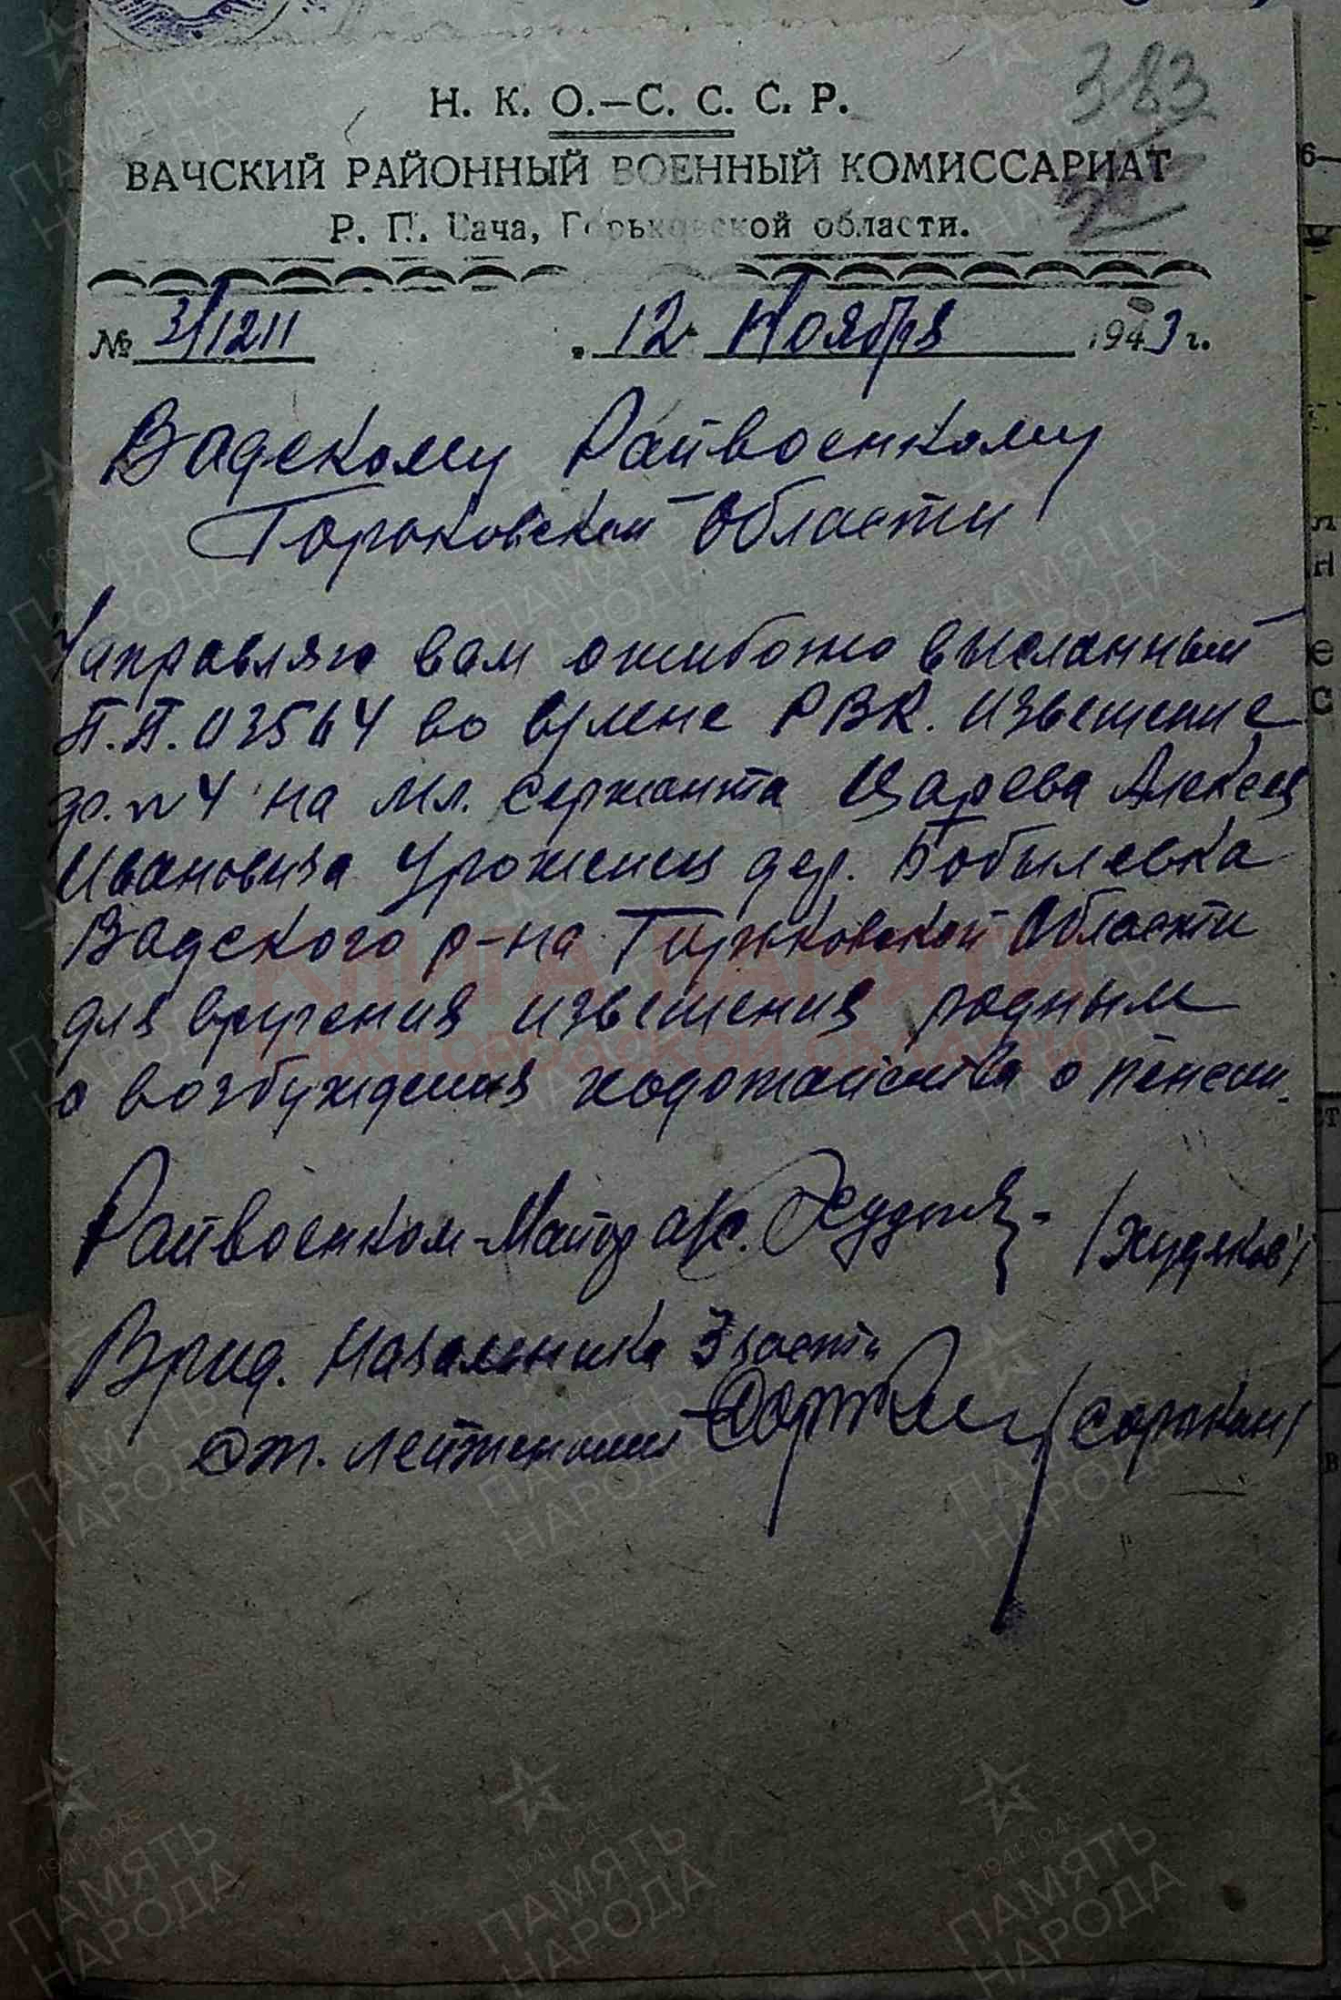 383
Н. К. О.—С. С. С. Р.
ВАЧСКИЙ РАЙОННЫЙ ВОЕННЫЙ КОМИССАРИАТ
Р. П. Вача, Горьковской области.
№ 3/1211 12 Ноября 1943 г.
Вадскому Райвоенкому
Горьковской области
Направляю вам ошибочно высланный
П.П. 03564 во РВК. извещение
№ 4 на мл. сержанта Царева Алексея
Ивановича Уроженец дер. Бобылевка
Вадского р-на Горьковской области
для вручения извещения родным
о возбуждения ходотайства о пенсии.
Райвоенком-Майор а/с. /Худяков/
Врид. Начальника 3 части
Ст. лейтенант /Сорокин/
КНИГА ПАМЯТИ
НИЖЕГОРОДСКОЙ ОБЛАСТИ
1941 1945
ПАМЯТЬ
НАРОДА